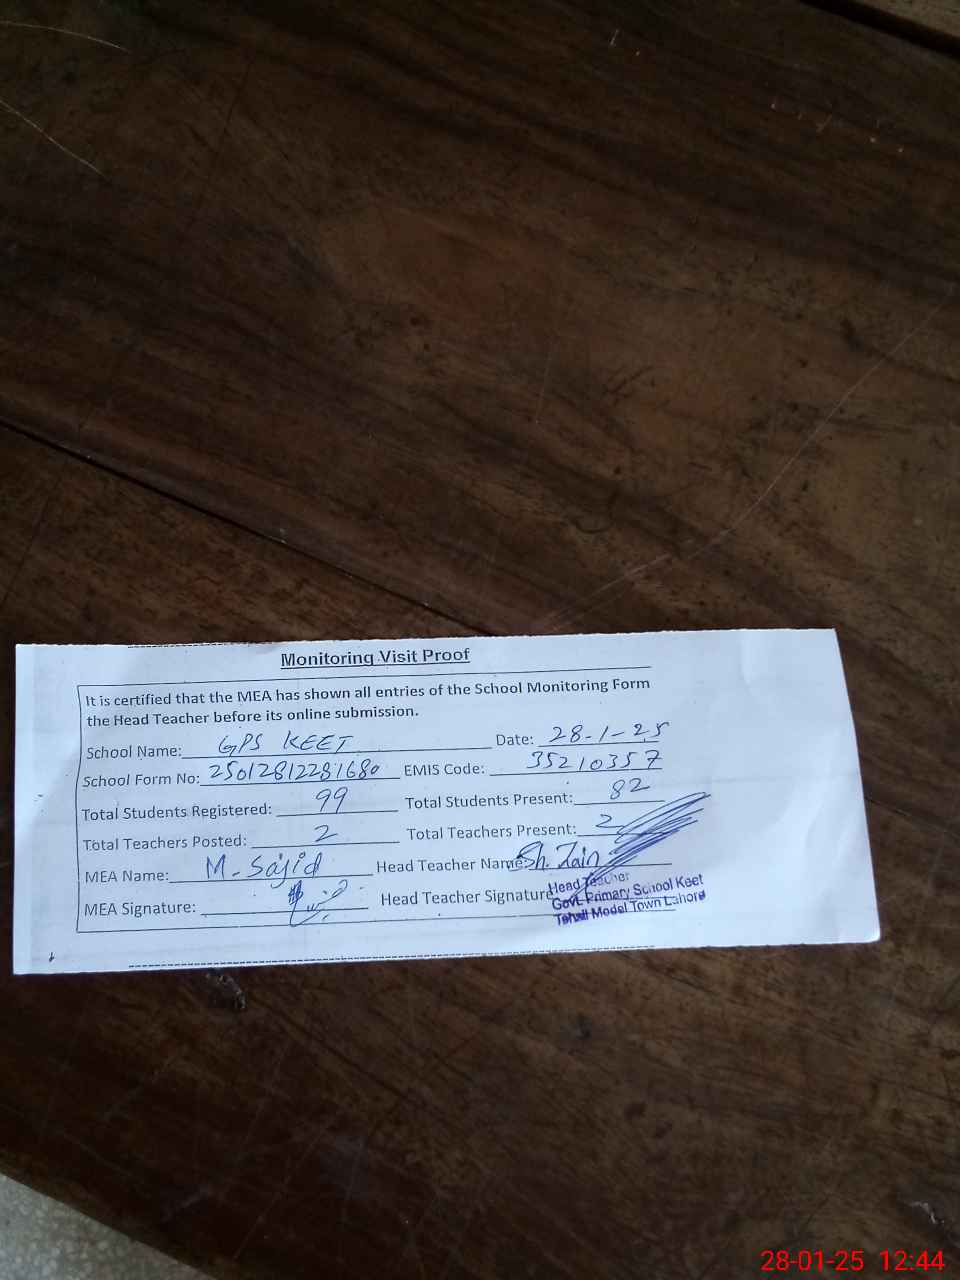 Monitoring Visit Proof
It is certified that the MEA has shown all entries of the School Monitoring Form
the Head Teacher before its online submission.
School Name: GPS KEET Date: 28-1-25
School Form No: 25012812281680 EMIS Code: 35210357
Total Students Registered: 99 Total Students Present: 82
Total Teachers Posted: 2 Total Teachers Present: 2
MEA Name: M. Sajid Head Teacher Name: Sh. Zain
MEA Signature: Head Teacher Signature
Head Teacher
Govt. Primary School Keet
Tehsil Model Town Lahore
28-01-25 12:44